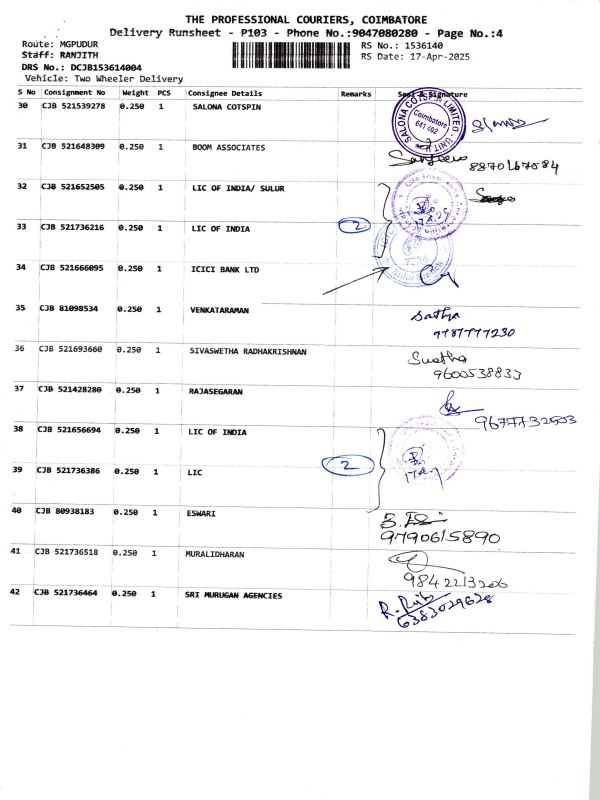 THE PROFESSIONAL COURIERS, COIMBATORE
Delivery Runsheet - P103 - Phone No.:9047080280 - Page No.:4
Route: MGPUDUR RS No.: 1536140
Staff: RANJITH RS Date: 17-Apr-2025
DRS No.: DCJB153614004
Vehicle: Two Wheeler Delivery
S No Consignment No Weight PCS Consignee Details Remarks Seal & Signature
30 CJB 521539278 0.250 1 SALONA COTSPIN
SALONA COTSPIN LIMITED - UNIT
Coimbatore
641 402
31 CJB 521648309 0.250 1 BOOM ASSOCIATES
8870167584
32 CJB 521652505 0.250 1 LIC OF INDIA/ SULUR
33 CJB 521736216 0.250 1 LIC OF INDIA 2
34 CJB 521666095 0.250 1 ICICI BANK LTD
35 CJB 81098534 0.250 1 VENKATARAMAN Sathya
9787777230
36 CJB 521693660 0.250 1 SIVASWETHA RADHAKRISHNAN Swatha
9600538833
37 CJB 521428280 0.250 1 RAJASEGARAN
9677732503
38 CJB 521656694 0.250 1 LIC OF INDIA
39 CJB 521736386 0.250 1 LIC 2
40 CJB 80938183 0.250 1 ESWARI
9790615890
41 CJB 521736518 0.250 1 MURALIDHARAN
9842213206
42 CJB 521736464 0.250 1 SRI MURUGAN AGENCIES
6383029628